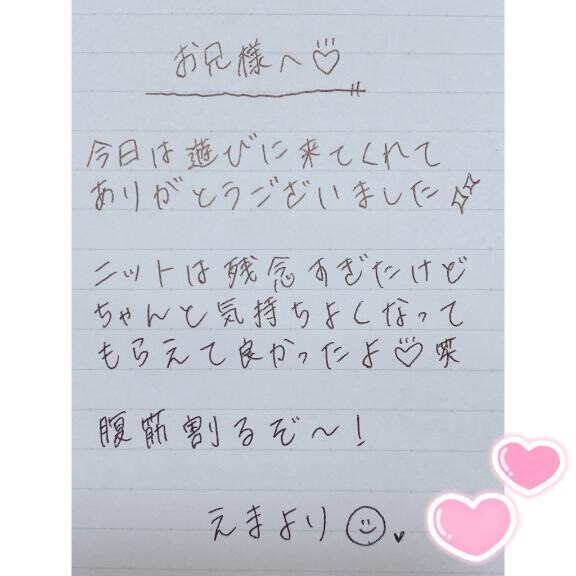 お兄様へ♡
今日は遊びに来てくれて
ありがとうございました
ニットは残念すぎたけど
ちゃんと気持ちよくなって
もらえて良かったよ♡笑
腹筋割るぞ〜！
えまより